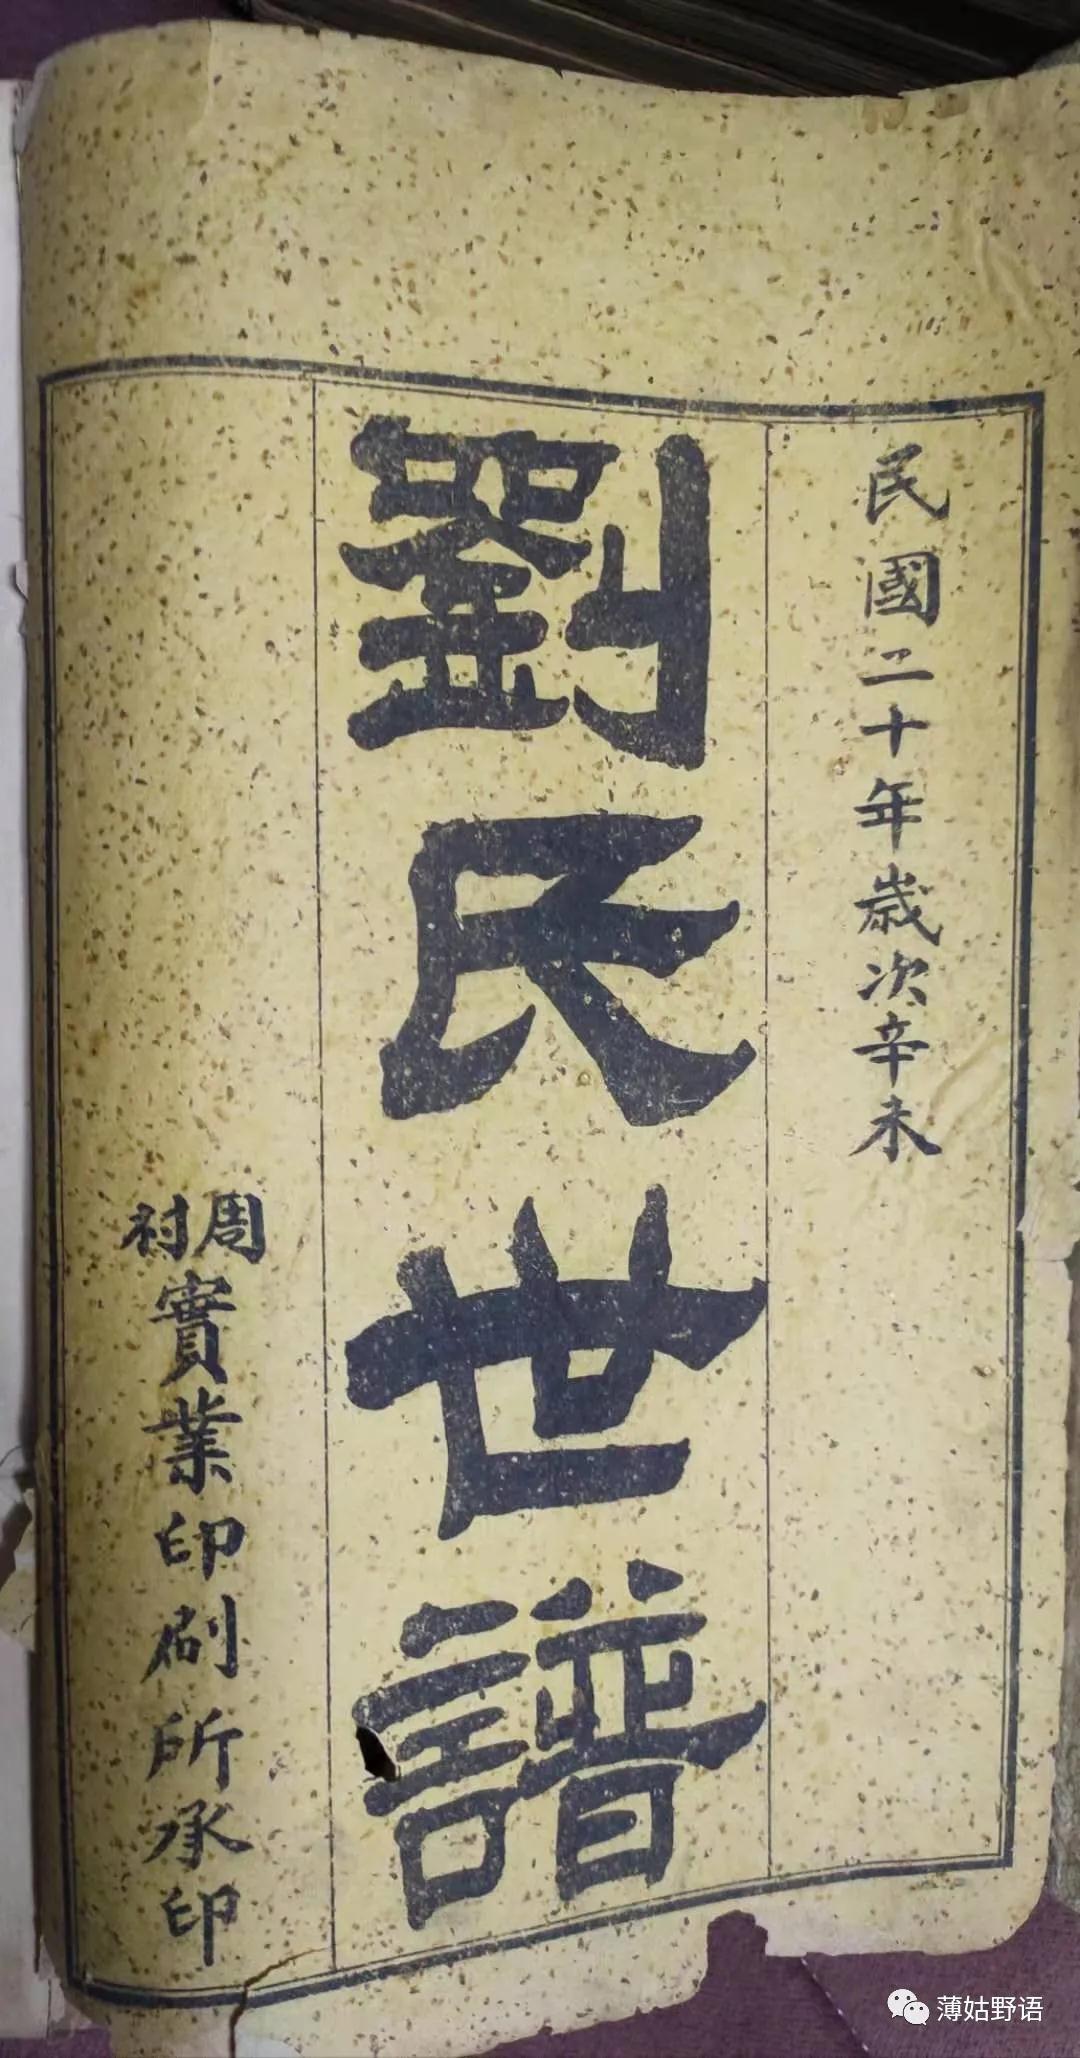 民國二十年歲次辛未
劉氏世譜
周村實業印刷所承印
薄姑野语